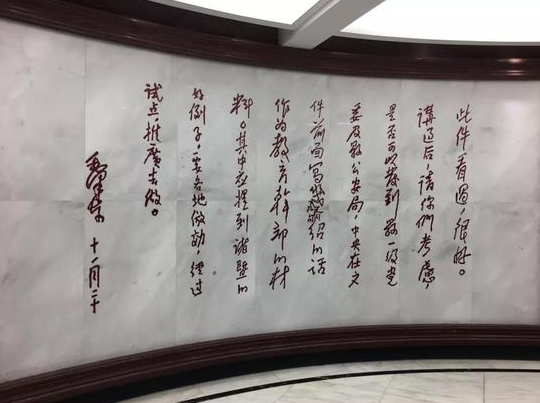 此件看过，很好。
講过后，請你們考慮，
是否可以發到县一级党
委及县公安局，中央在文
件前面寫幾句介紹的話
作为教育幹部的材
料。其中应提到諸暨的
好例子，要各地仿効，經过
試点，推廣去做。
毛泽东 十一月二十